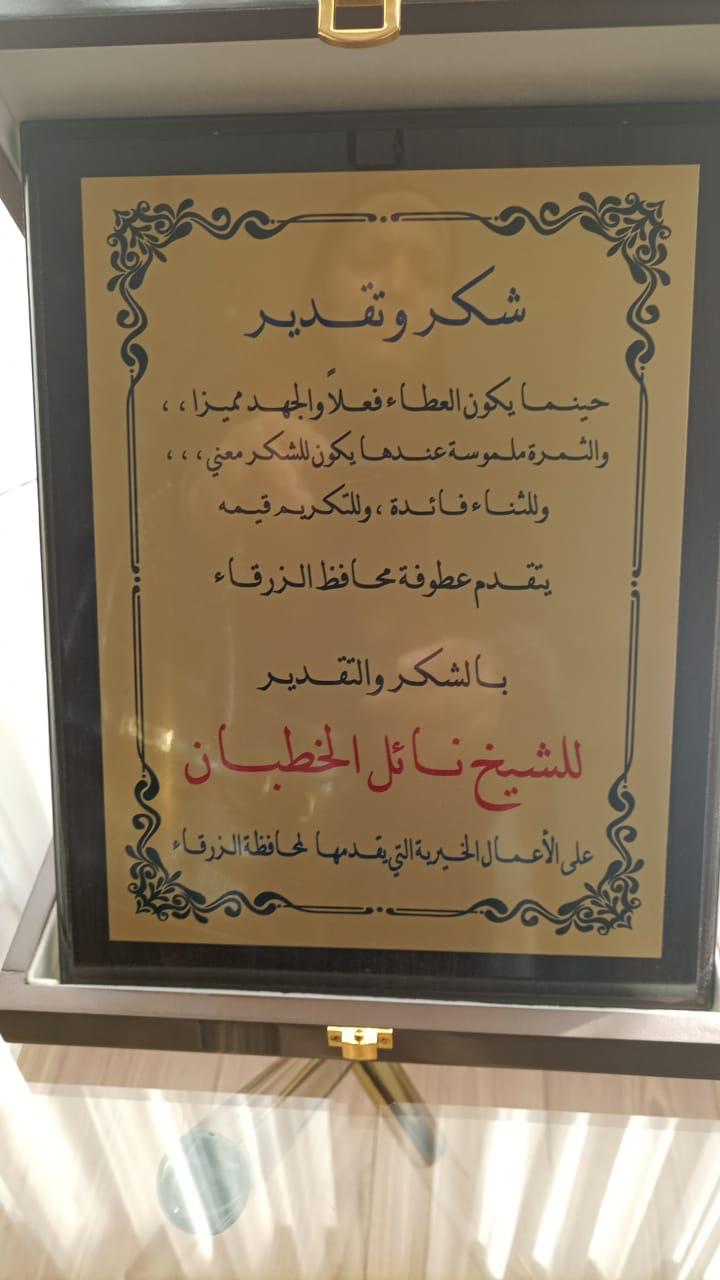 شكر وتقدير
حينما يكون العطاء فعلاً والجهد مميزا ،،
والثمرة ملموسة عندها يكون للشكر معني،،،
وللثناء فائدة ، وللتكريم قيمه
يتقدم عطوفة محافظ الزرقاء
بالشكر والتقدير
للشيخ نائل الخطبان
على الأعمال الخيرية التي يقدمها لمحافظة الزرقاء